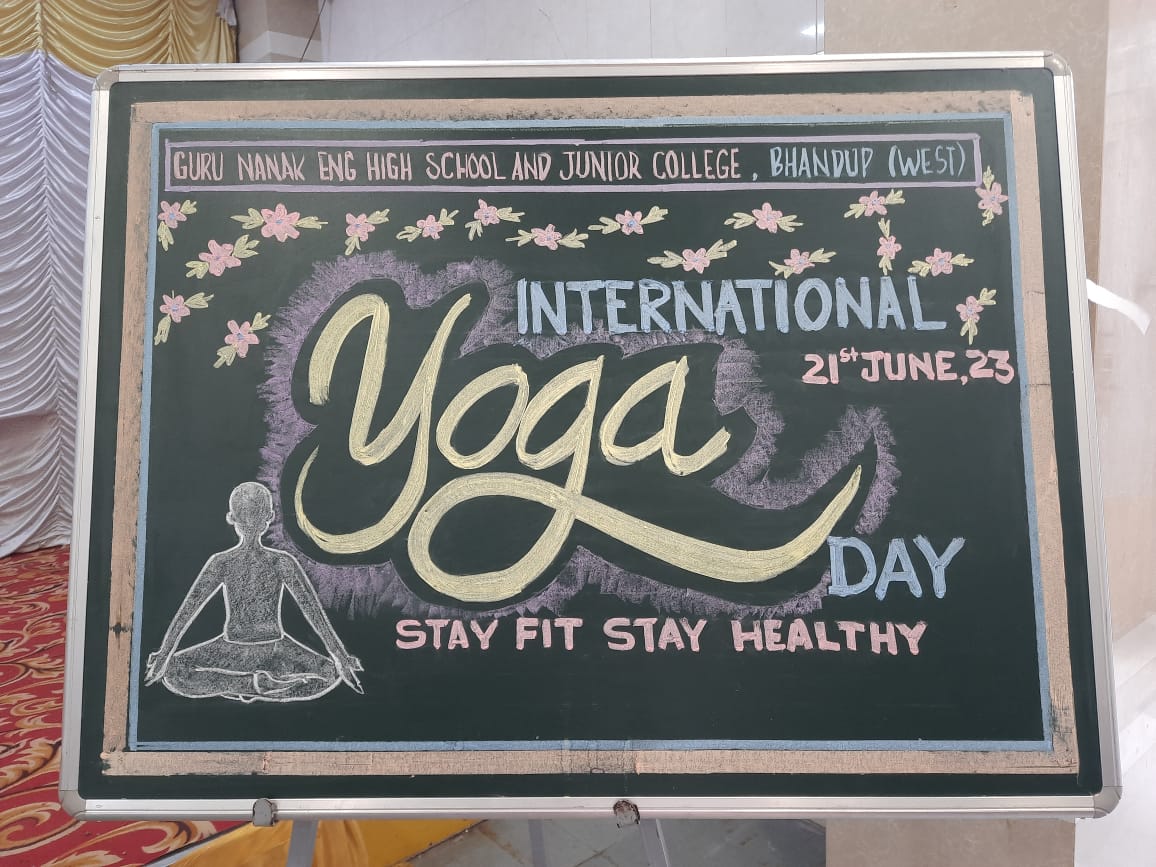 GURU NANAK ENG HIGH SCHOOL AND JUNIOR COLLEGE, BHANDUP (WEST)
INTERNATIONAL
21st JUNE, 23
Yoga
DAY
STAY FIT STAY HEALTHY